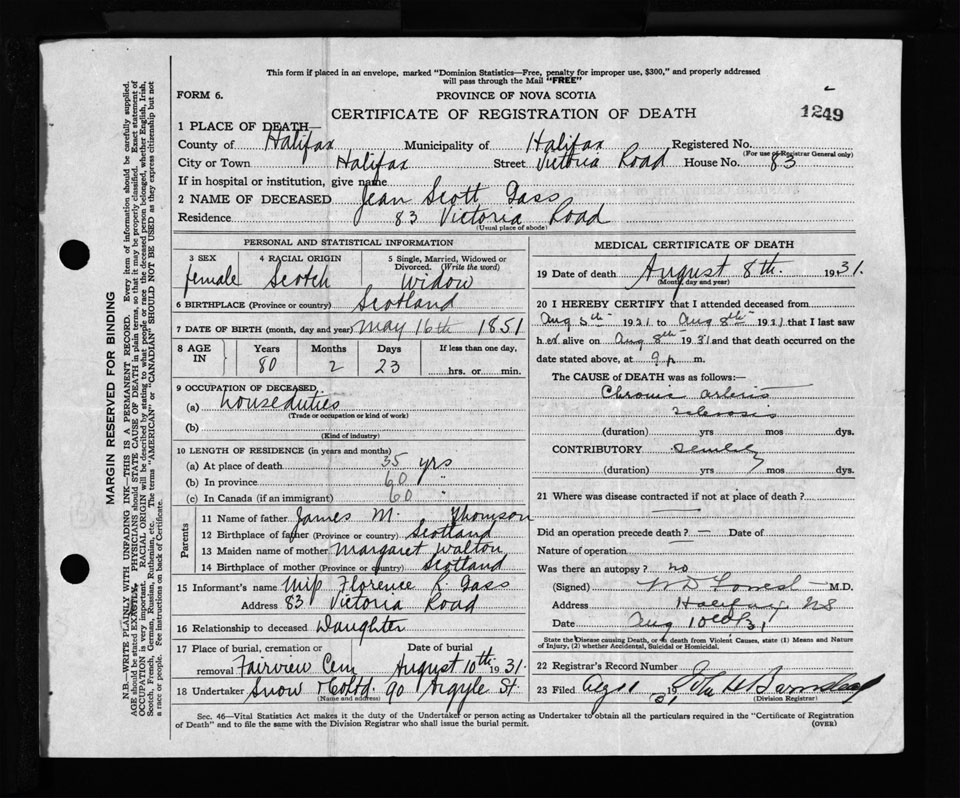 This form if placed in an envelope, marked "Dominion Statistics—Free, penalty for improper use, $300," and properly addressed
will pass through the Mail "FREE"
FORM 6.
PROVINCE OF NOVA SCOTIA
CERTIFICATE OF REGISTRATION OF DEATH
1249
1 PLACE OF DEATH—
County of Halifax Municipality of Halifax Registered No.
(For use of Registrar General only)
City or Town Halifax Street Victoria Road House No. 83
If in hospital or institution, give name
2 NAME OF DECEASED Jean Scott Gass
Residence 83 Victoria Road
(Usual place of abode)
PERSONAL AND STATISTICAL INFORMATION
3 SEX 4 RACIAL ORIGIN 5 Single, Married, Widowed or
Divorced. (Write the word)
female Scotch Widow
6 BIRTHPLACE (Province or country) Scotland
7 DATE OF BIRTH (month, day and year) May 16th 1851
8 AGE IN Years Months Days If less than one day,
80 2 23 hrs. or min.
9 OCCUPATION OF DECEASED
(a) house duties
(Trade or occupation or kind of work)
(b)
(Kind of industry)
10 LENGTH OF RESIDENCE (in years and months)
(a) At place of death 35 yrs
(b) In province 60 "
(c) In Canada (if an immigrant) 60 "
Parents
11 Name of father James M. Thomson
12 Birthplace of father (Province or country) Scotland
13 Maiden name of mother Margaret Walton
14 Birthplace of mother (Province or country) Scotland
15 Informant's name Miss Florence R. Gass
Address 83 Victoria Road
16 Relationship to deceased Daughter
17 Place of burial, cremation or Date of burial
removal Fairview Cem August 10th 1931.
18 Undertaker Snow & Co Ltd. 90 Argyle St.
(Name and address)
MEDICAL CERTIFICATE OF DEATH
19 Date of death August 8th. 1931.
(Month, day and year)
20 I HEREBY CERTIFY that I attended deceased from
Aug 5th 1931 to Aug 8th 1931 that I last saw
her alive on Aug 8th 1931 and that death occurred on the
date stated above, at 9 p m.
The CAUSE of DEATH was as follows:—
Chronic arterio
sclerosis
(duration) yrs mos dys.
CONTRIBUTORY Senility
(duration) yrs mos dys.
21 Where was disease contracted if not at place of death?
Did an operation precede death? — Date of
Nature of operation
Was there an autopsy? no
(Signed) W D Forrest M.D.
Address Halifax NS
Date Aug 10th 31
State the Disease causing Death, or in death from Violent Causes, state (1) Means and Nature
of Injury, (2) whether Accidental, Suicidal or Homicidal.
22 Registrar's Record Number
23 Filed 19 31
(Division Registrar)
Sec. 46—Vital Statistics Act makes it the duty of the Undertaker or person acting as Undertaker to obtain all the particulars required in the "Certificate of Registration
of Death" and to file the same with the Division Registrar who shall issue the burial permit.
(OVER)
MARGIN RESERVED FOR BINDING
N.B.—WRITE PLAINLY WITH UNFADING INK—THIS IS A PERMANENT RECORD. Every item of information should be carefully supplied.
AGE should be stated EXACTLY. PHYSICIANS should STATE CAUSE OF DEATH in plain terms, so that it may be properly classified. Exact statement of
OCCUPATION is very important. RACIAL ORIGIN will be described by stating to what people or race the deceased person belonged, whether English, Irish,
Scotch, French, German, Russian, Ruthenian, etc. The terms "AMERICAN" or "CANADIAN" SHOULD NOT BE USED as they express citizenship but not
a race or people. See instructions on back of Certificate.